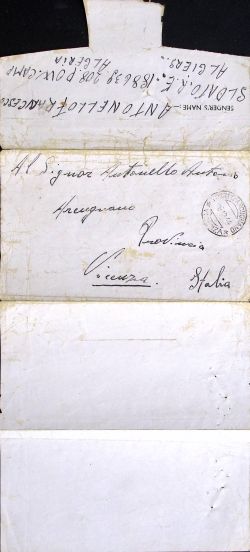 SENDER'S NAME — ANTONELLO FRANCESCO
SLDATO. R. E. 188698 208 P.O.W. CAMP
ALGIERS. ALGERIA
Al Signor Antonello Antonio
Arcugnano
Provincia
Vicenza. Italia